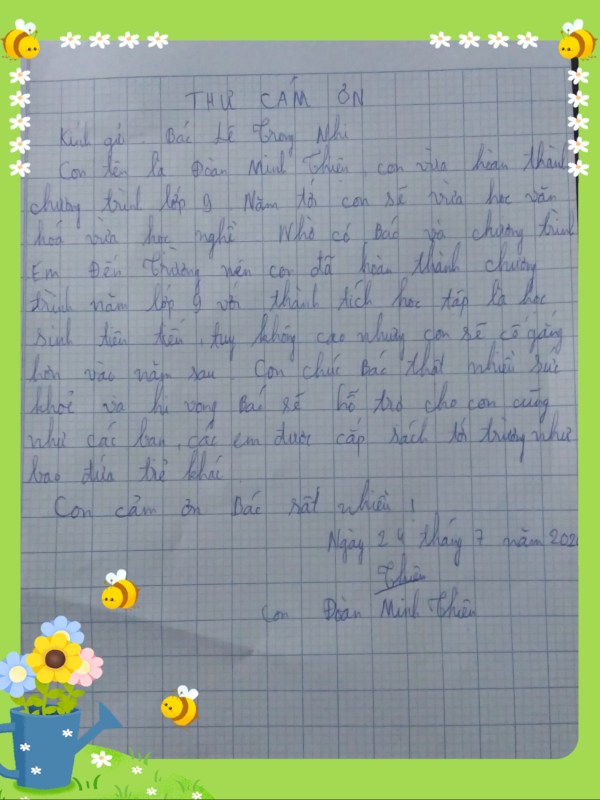 THƯ CẢM ƠN
Kính gửi: Bác Lê Trọng Nhi
Con tên là Đoàn Minh Thiên, con vừa hoàn thành
chương trình lớp 9. Năm tới con sẽ vừa học văn
hoá vừa học nghề. Nhờ có Bác và chương trình
Em Đến Trường nên con đã hoàn thành chương
trình năm lớp 9 với thành tích học tập là học
sinh tiên tiến, tuy không cao nhưng con sẽ cố gắng
hơn vào năm sau. Con chúc Bác thật nhiều sức
khoẻ và hi vọng Bác sẽ hỗ trợ cho con cũng
như các bạn, các em được cấp sách tới trường như
bao đứa trẻ khác.
Con cảm ơn Bác rất nhiều!
Ngày 24 tháng 7 năm
Thiên
Con Đoàn Minh Thiên